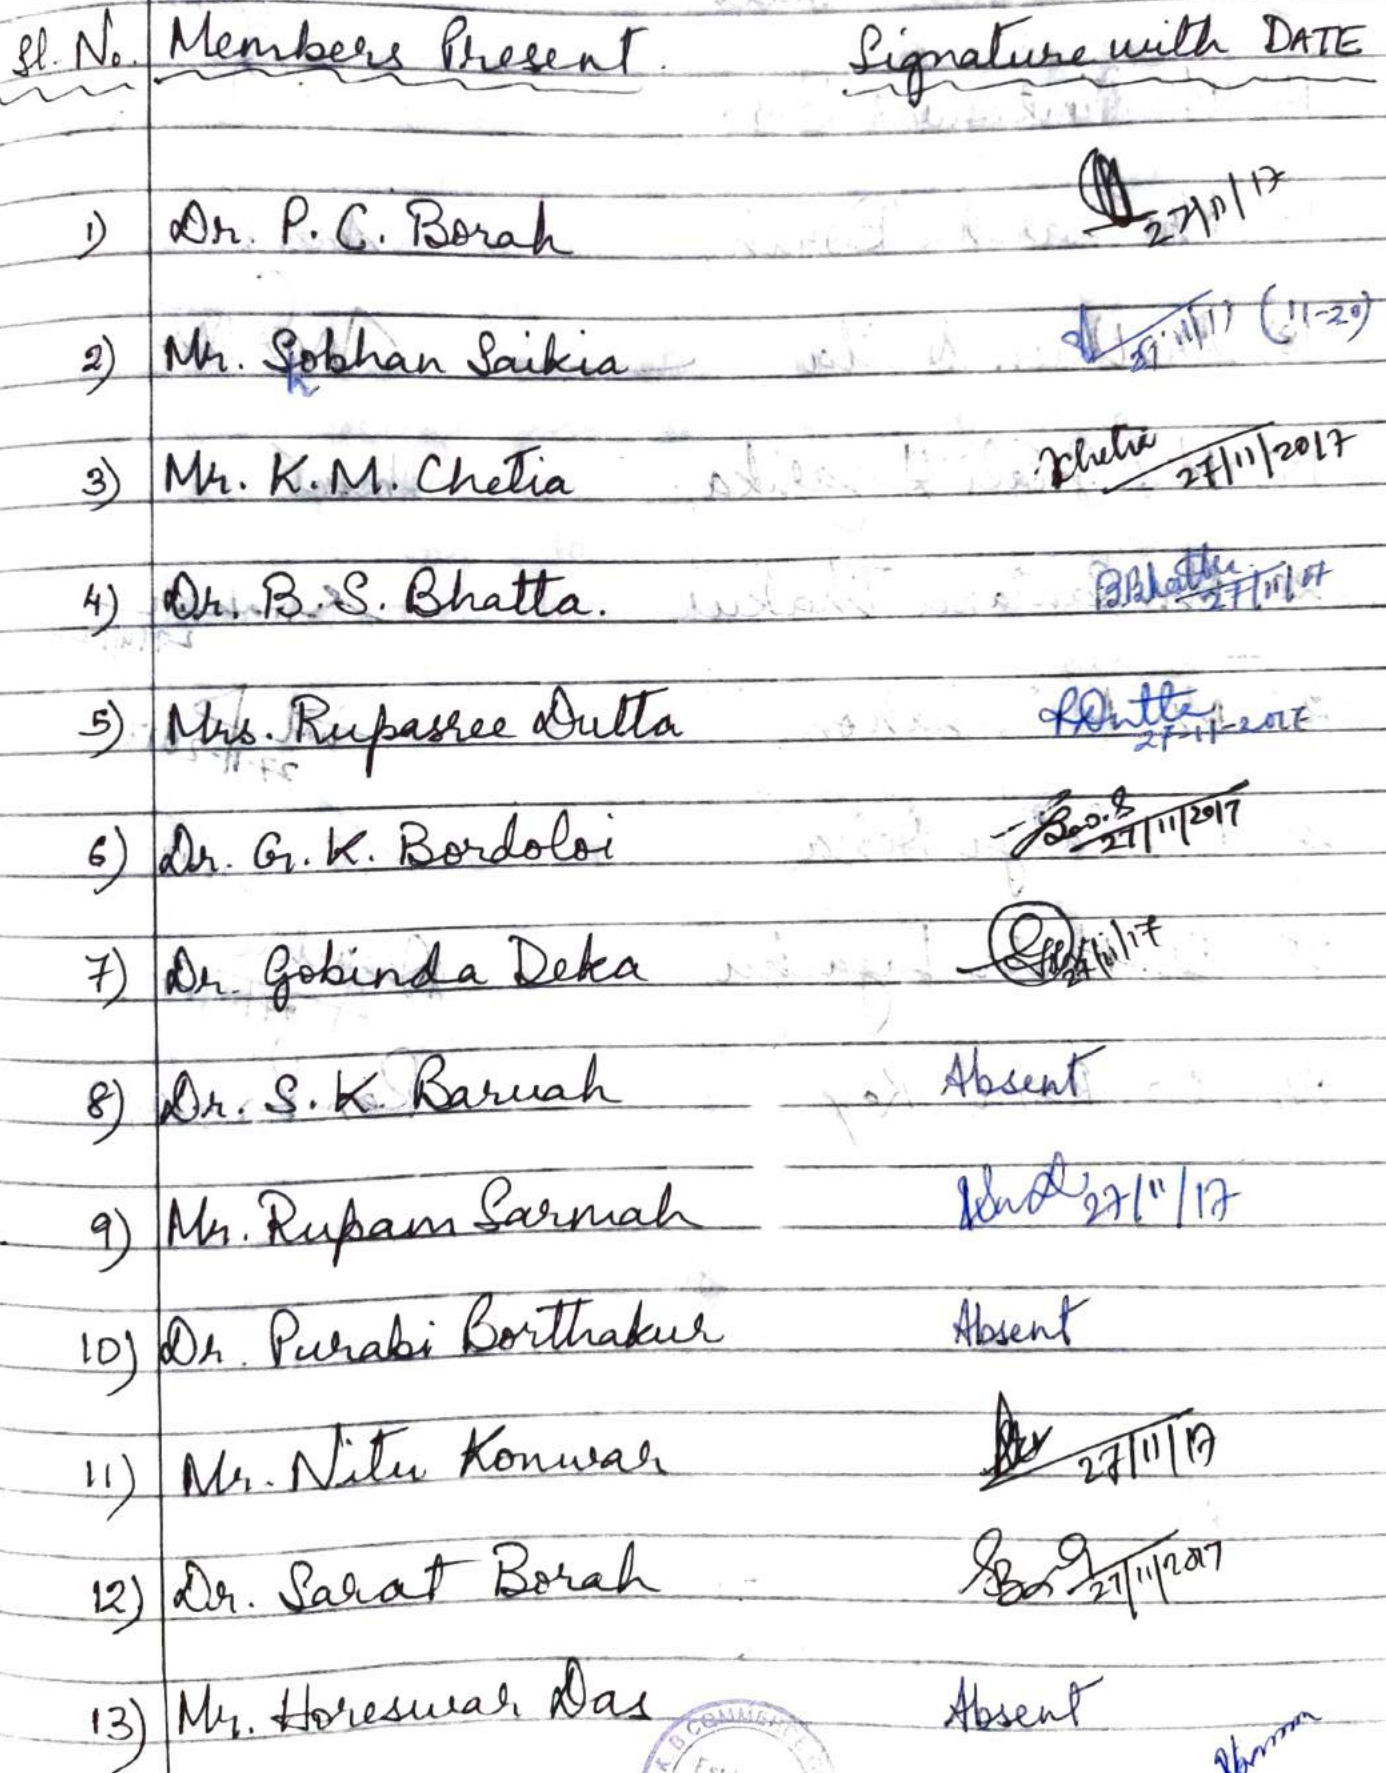 Sl. No. Members Present. Signature with DATE
1) Dr. P. C. Borah 27/11/17
2) Mr. Sobhan Saikia 27/11/17 (11-20)
h
3) Mr. K.M. Chetia Chetia 27/11/2017
4) Dr. B. S. Bhatta. BBhatta 27/11/17
5) Mrs. Rupasree Dutta RDutta 27-11-2017
6) Dr. G. K. Bordoloi 27/11/2017
7) Dr. Gobinda Deka 27/11/17
8) Dr. S. K. Baruah Absent
9) Mr. Rupam Sarmah 27/11/17
10) Dr. Purabi Borthakur Absent
11) Mr. Nitu Konwar 27/11/17
12) Dr. Sarat Borah 27/11/2017
13) Mr. Horeswar Das Absent